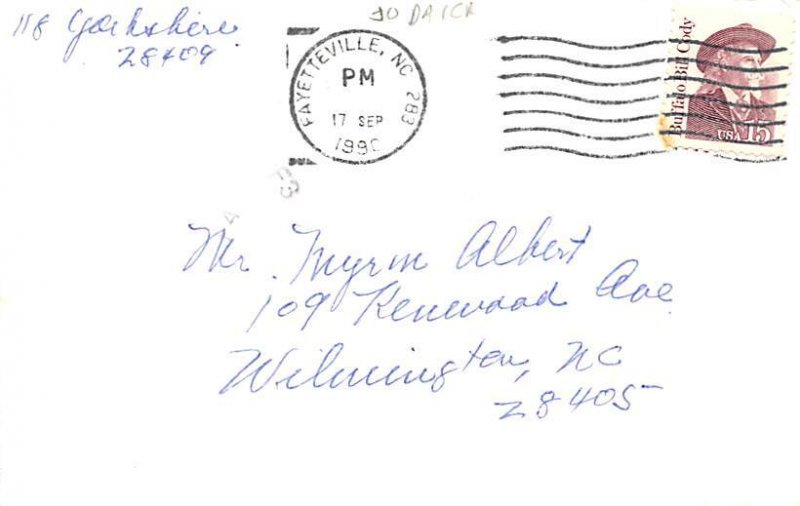 118 Yorkshire
28409
FAYETTEVILLE, NC 283
PM
17 SEP
1990
Buffalo Bill Cody
USA 15
Mr. Myrm Albert
109 Kenwood Ave
Wilmington, NC
28405